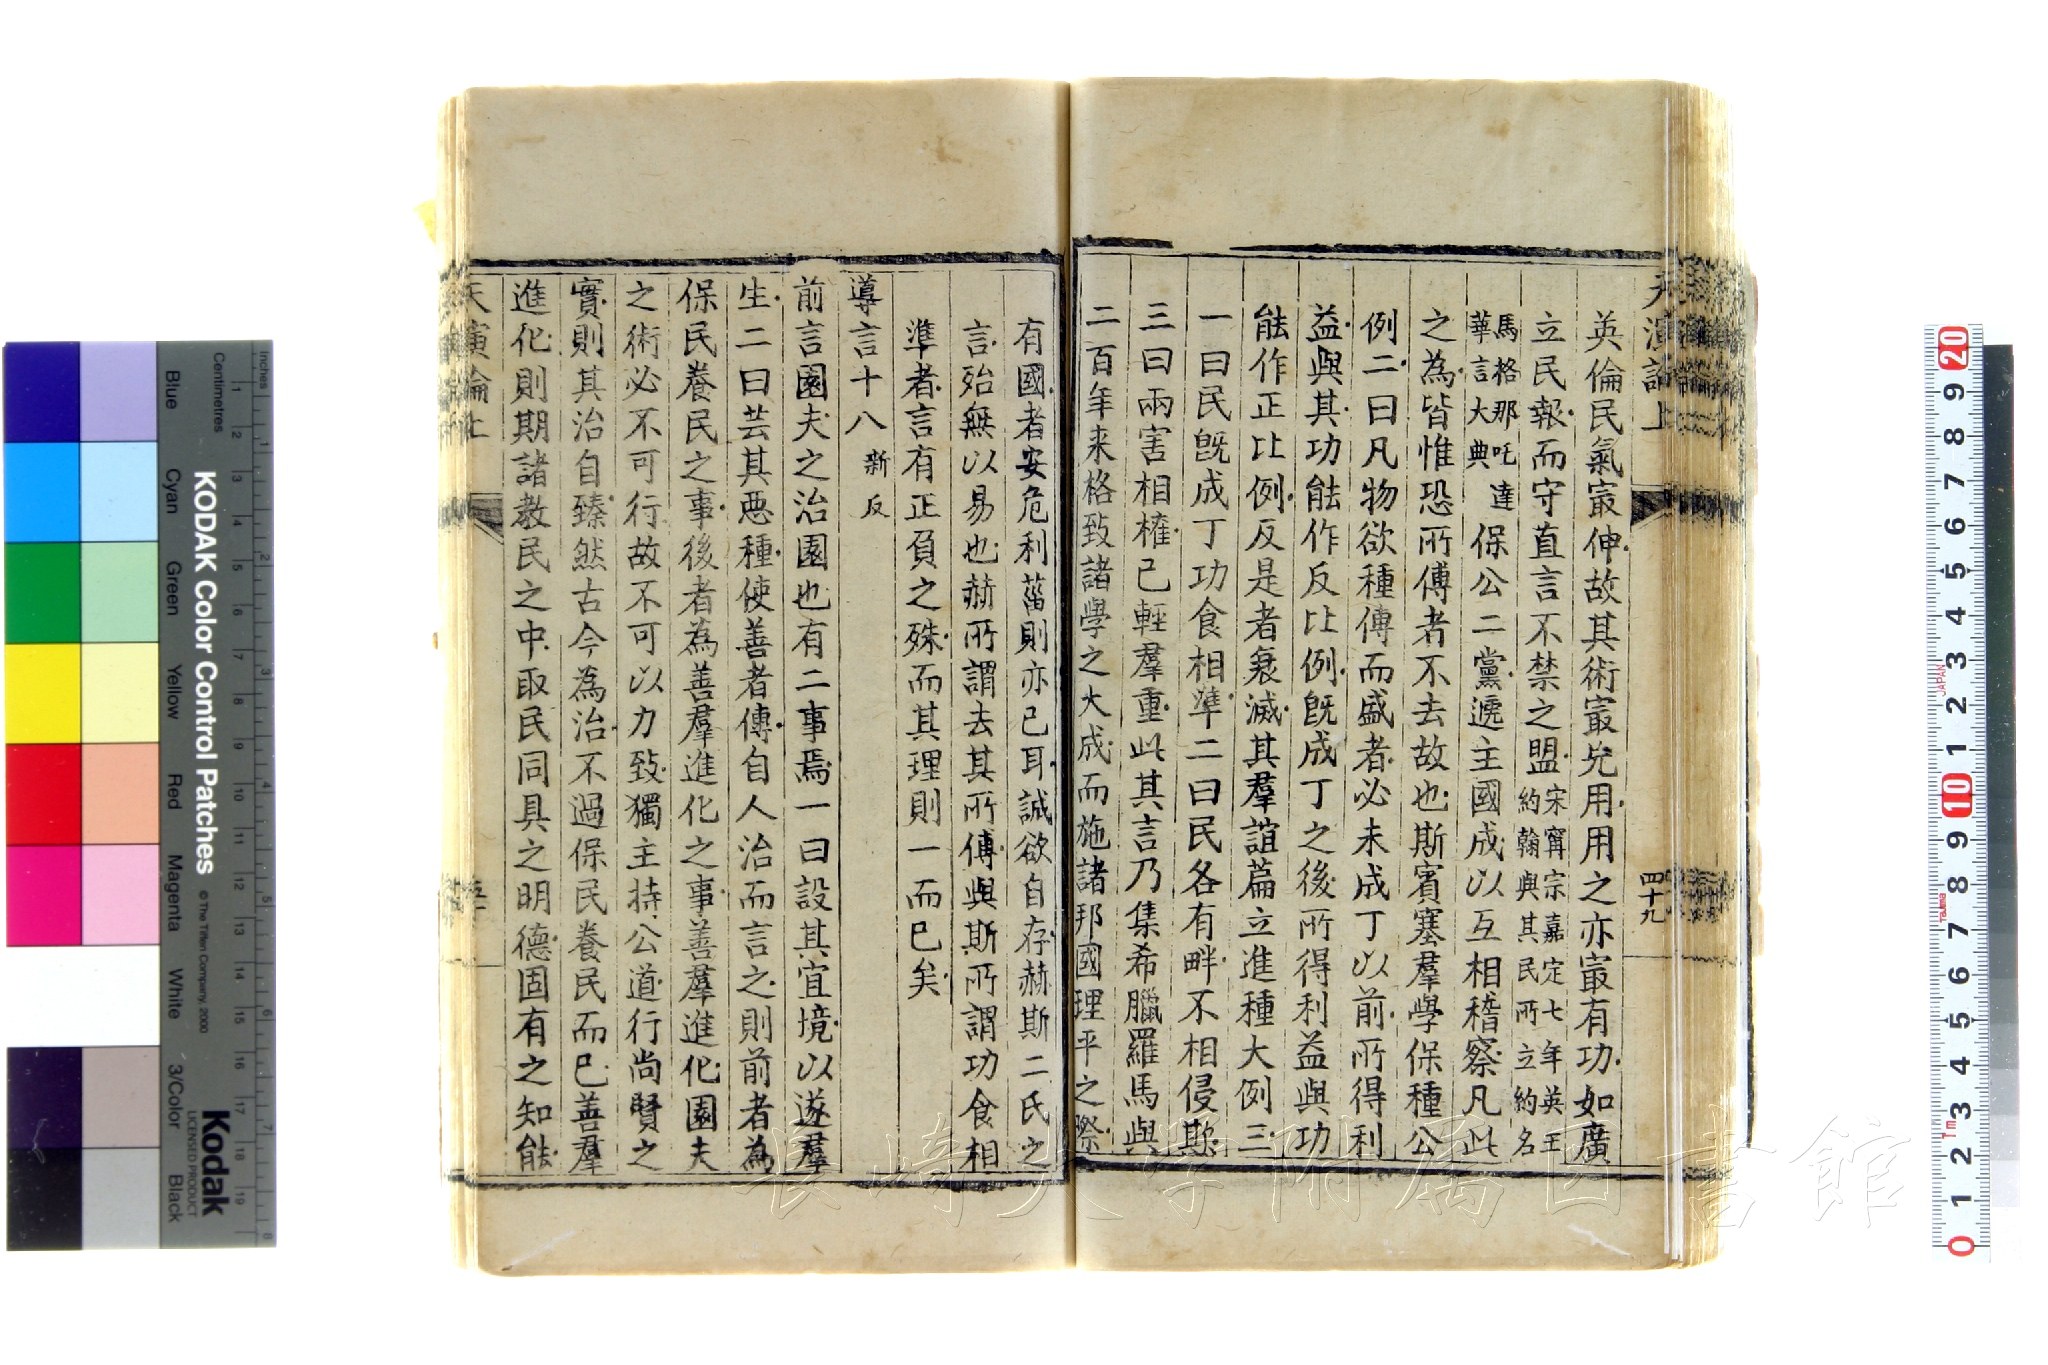 天演論上
四十九
英倫民氣最伸故其術最先用用之亦最有功如廣
立民報而守直言不禁之盟宋寗宗嘉定七年英王約翰與其民所立約名
馬格那吒達華言大典保公二黨遞主國成以互相稽察凡此
之為皆惟恐所傅者不去故也斯賓塞羣學保種公
例二曰凡物欲種傳而盛者必未成丁以前所得利
益與其功能作反比例既成丁之後所得利益與功
能作正比例反是者衰滅其羣誼篇立進種大例三
一曰民既成丁功食相準二曰民各有畔不相侵欺
三曰兩害相權己輕羣重此其言乃集希臘羅馬與
二百年来格致諸學之大成而施諸邦國理平之際
有國者安危利菑則亦已耳誠欲自存赫斯二氏之
言殆無以易也赫所謂去其所傅與斯所謂功食相
準者言有正負之殊而其理則一而已矣
導言十八 新反
前言園夫之治園也有二事焉一曰設其宜境以遂羣
生二曰芸其惡種使善者傳自人治而言之則前者為
保民養民之事後者為善羣進化之事善羣進化園夫
之術必不可行故不可以力致獨主持公道行尚賢之
實則其治自臻然古今為治不過保民養民而已善羣
進化則期諸教民之中取民同具之明德固有之知能
天演論上
長崎大学附属図書館
Inches
Centimetres
KODAK Color Control Patches
© The Tiffen Company, 2000
Kodak
LICENSED PRODUCT
Blue
Cyan
Green
Yellow
Red
Magenta
White
3/Color
Black
JAPAN